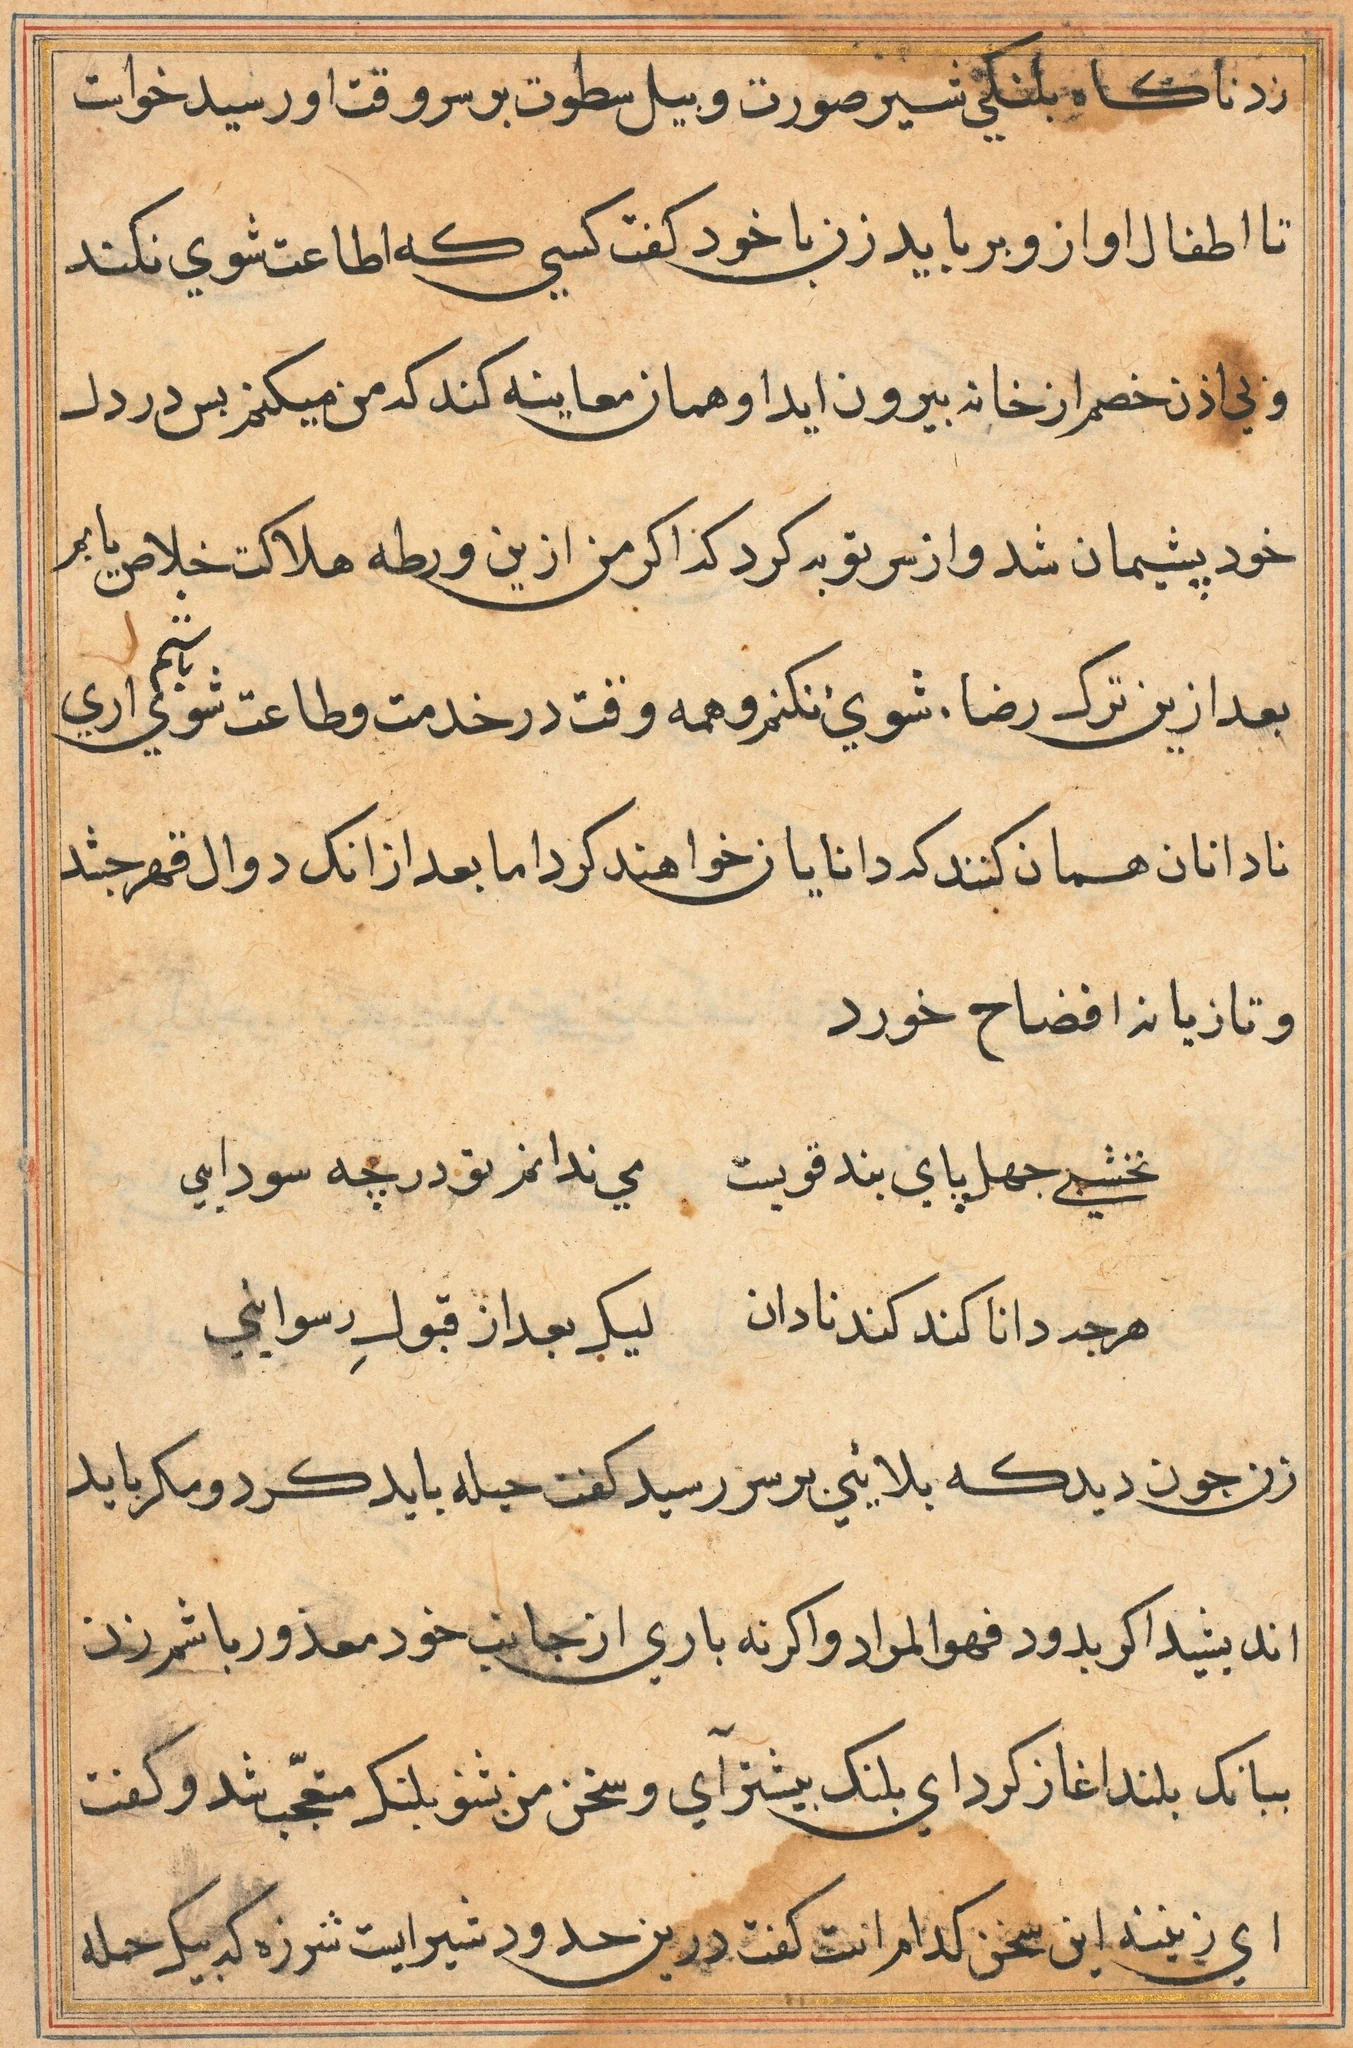 زد ناكاه بلنكي شير صورت و بيل سطوت بر سر وقت او رسيد خواست
تا اطفال او ازو بربايد زن با خود كفت كسي كه اطاعت شوي نكند
و بي اذن خصم از خانه بيرون ايد او همان معاينه كند كه من ميكنم بس در دل
خود پشيمان شد و از سر توبه كرد كه اكر من ازين ورطه هلاكت خلاص يابم
بعد ازين ترك رضاء شوئ نكنم و همه وقت در خدمت و طاعت شوئي باشم اري
نادانان همان كنند كه دانايان خواهند كرد اما بعد از انك دوال قهر جشد
و تازيانه افضاح خورد
نخشبي جهل پاي بند قويست مي ندانم تو در چه سودايي
هرجه دانا كند كند نادان ليك بعد از قبولِ رسوايئي
زن جون ديد كه بلايئي بر سر رسيد كفت حيله بايد كرد و مكر بايد
انديشيد اكر بدود فهو المراد و اكر نه باري از جانب خود معذور باشم زن
ببانك بلند اغاز كرد اي بلنك بيشتر آي و سخن من بشنو بلنك متعجّب شد و كفت
اي زينه اين سخن كدام است كفت درين حدود شيرايست شرزه كه بيك حمله